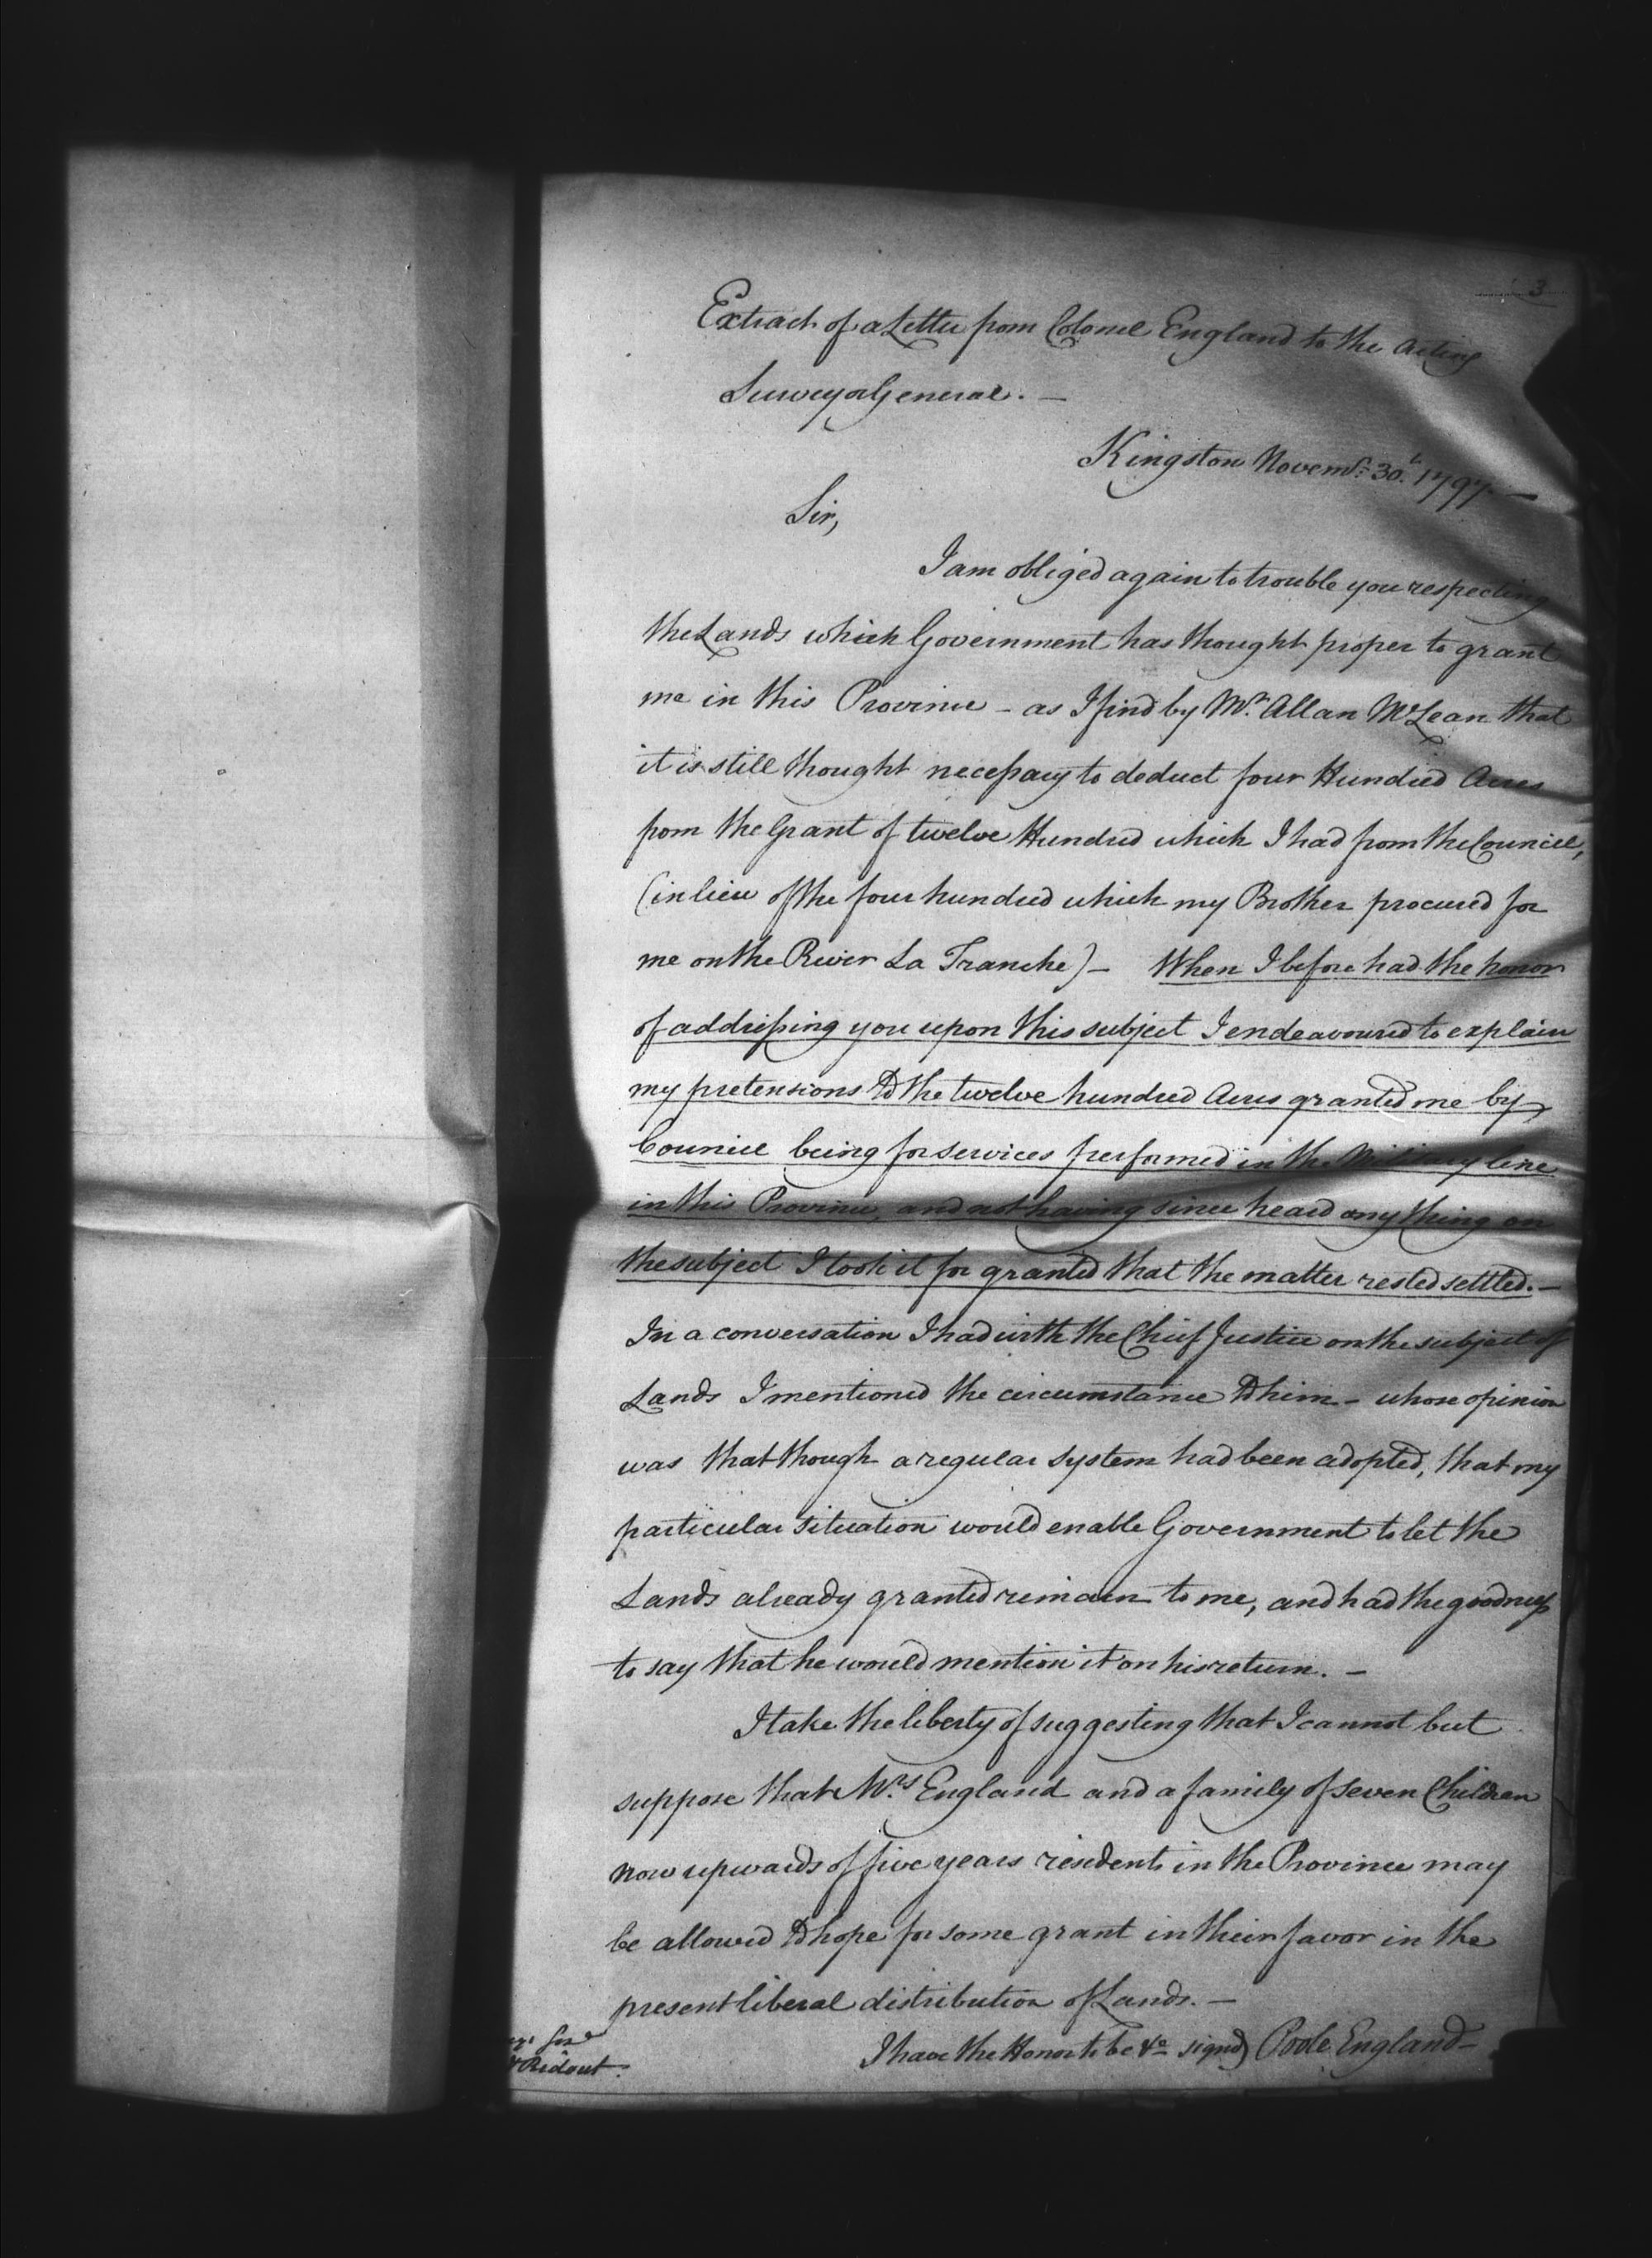 3
Extract of a Letter from Colonel England to the Acting
Surveyor General. —
Kingston Novemr. 30th 1797. —
Sir,
I am obliged again to trouble you respecting
the Lands which Government has thought proper to grant
me in this Province – as I find by Mr. Allan McLean that
it is still thought necessary to deduct four Hundred Acres
from the Grant of twelve Hundred which I had from the Council,
(in lieu of the four hundred which my Brother procured for
me on the River La Tranche) – When I before had the honor
of addressing you upon this subject I endeavoured to explain
my pretensions to the twelve hundred Acres granted me by
Council being for services performed in the Military line
in this Province, and not having since heard any thing on
the subject I took it for granted that the matter rested settled. —
In a conversation I had with the Chief Justice on the subject of
Lands I mentioned the circumstance to him – whose opinion
was that though a regular system had been adopted, that my
particular situation would enable Government to let the
Lands already granted remain to me, and had the goodness
to say that he would mention it on his return. —
I take the liberty of suggesting that I cannot but
suppose that Mrs. England and a family of seven Children
now upwards of five years residents in the Province may
be allowed to hope for some grant in their favor in the
present liberal distribution of Lands. —
I have the Honor to be &c signed) Poole England –
Ridout.